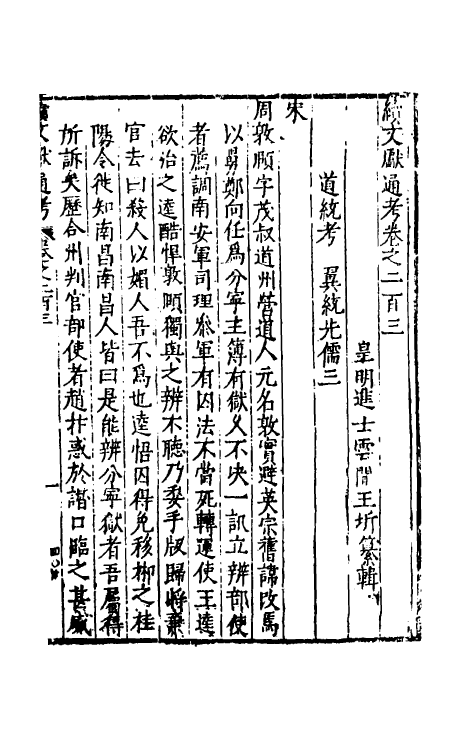 續文獻通考卷之二百三
皇明進士雲間王圻纂輯
道統考　翼統先儒三
宋
周敦頤字茂叔道州營道人元名敦實避英宗舊諱改焉
以舅鄭向任爲分寧主簿有獄久不決一訊立辨部使
者薦調南安軍司理參軍有囚法不當死轉運使王逵
欲治之逵酷悍敦頤獨與之辨不聽乃委手版歸將棄
官去曰殺人以媚人吾不爲也逵悟囚得免移郴之桂
陽令徙知南昌南昌人皆曰是能辨分寧獄者吾屬得
所訴矣歷合州判官部使者趙抃惑於譖口臨之甚威
續文獻通考　卷之二百三
一